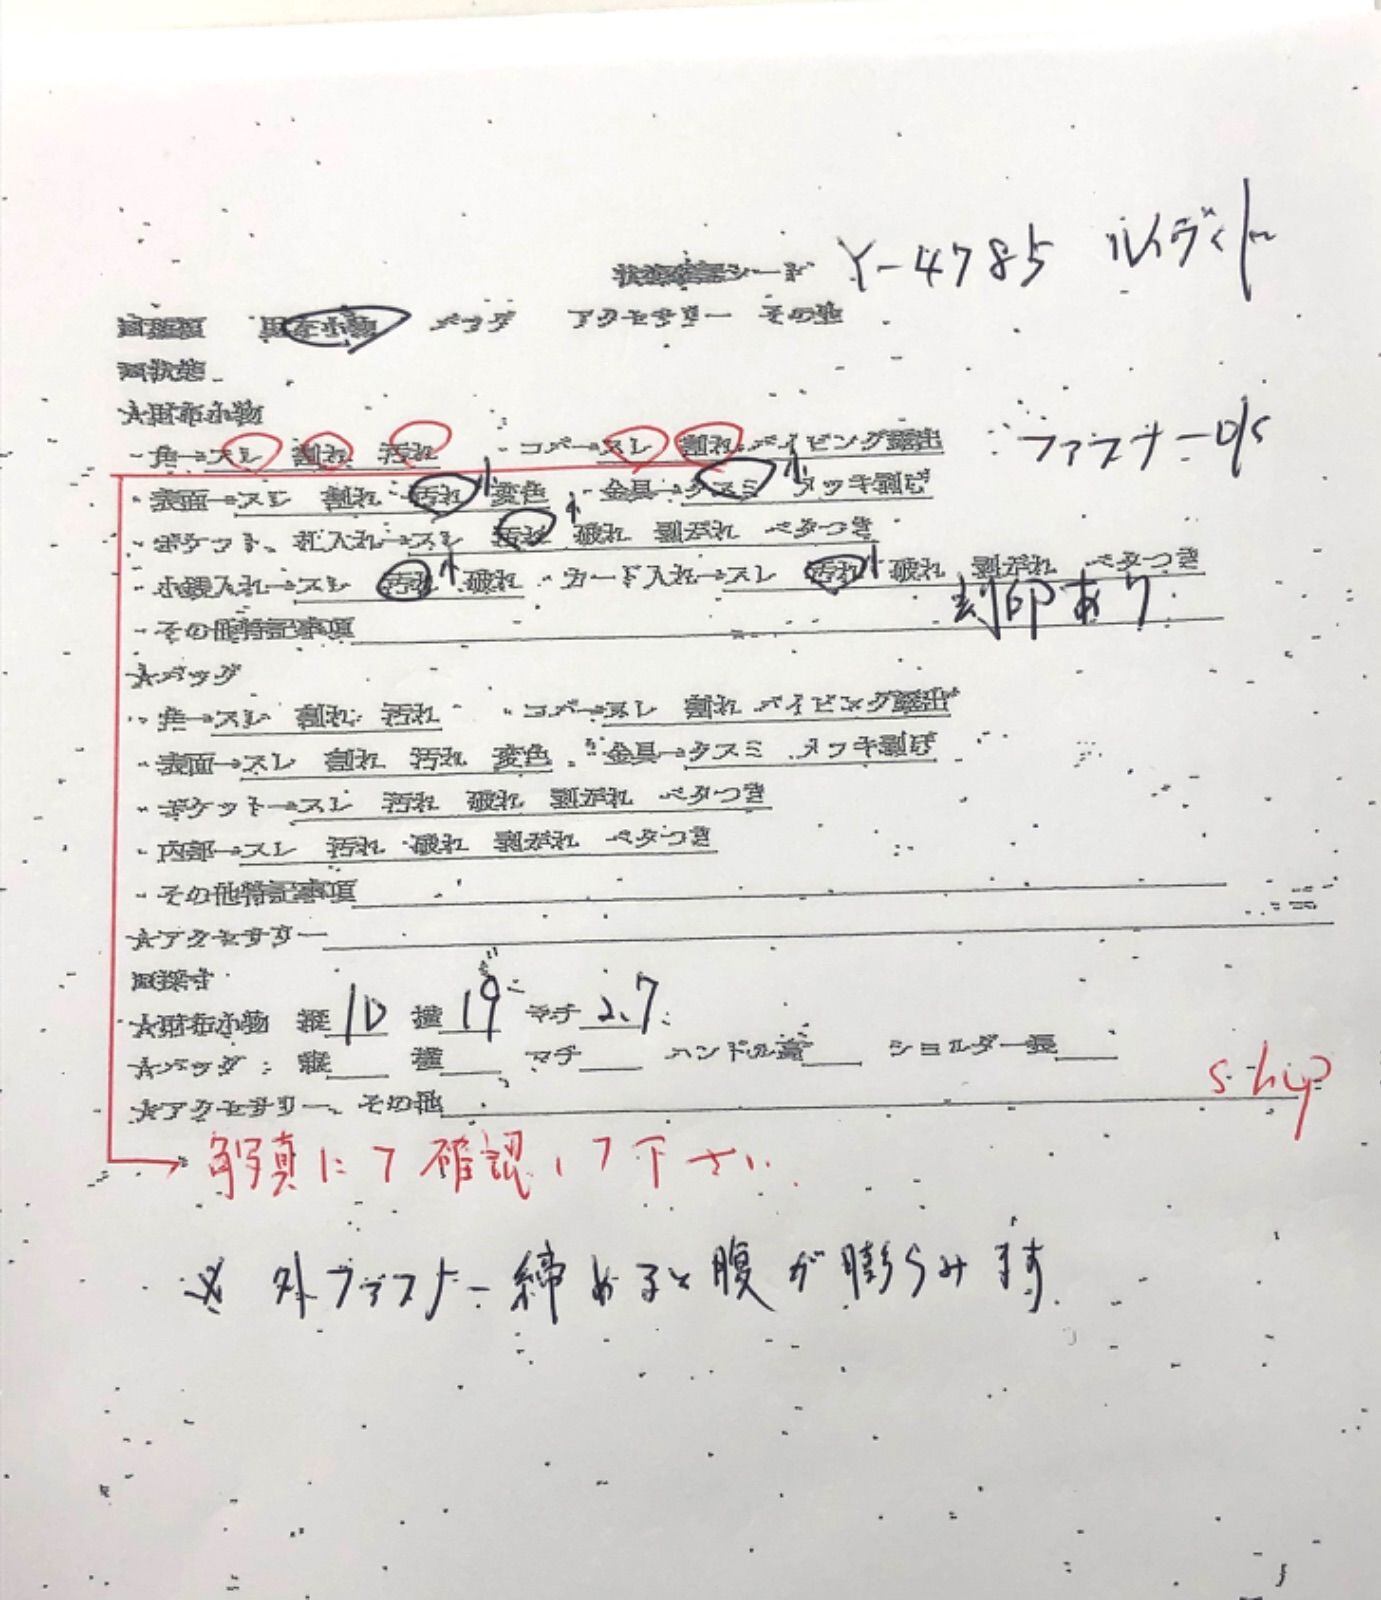 状態確認シート Y-4785 ルイヴィトン
回種類 財布小物 バッグ アクセサリー その他
回状態
★財布小物
・角→スレ 割れ 汚れ ・コバ→スレ 割れ パイピング露出 ファスナーO/S
・表面→スレ 割れ 汚れ小 変色 ・金具→クスミ小 メッキ剥げ
・ポケット、札入れ→スレ 汚れ小 破れ 剥がれ ベタつき
・小銭入れ→スレ 汚れ小 破れ ・カード入れ→スレ 汚れ小 破れ 剥がれ ベタつき
・その他特記事項 刻印あり
★バッグ
・角→スレ 割れ 汚れ ・コバ→スレ 割れ パイピング露出
・表面→スレ 割れ 汚れ 変色 ・金具→クスミ メッキ剥げ
・ポケット→スレ 汚れ 破れ 剥がれ ベタつき
・内部→スレ 汚れ 破れ 剥がれ ベタつき
・その他特記事項
★アクセサリー
回採寸
★財布小物 縦10 横19 マチ2.7
★バッグ 縦 横 マチ ハンドル高 ショルダー長
★アクセサリー、その他
ship
写真にて確認して下さい.
※ 外ファスナー締めると腹が膨らみます